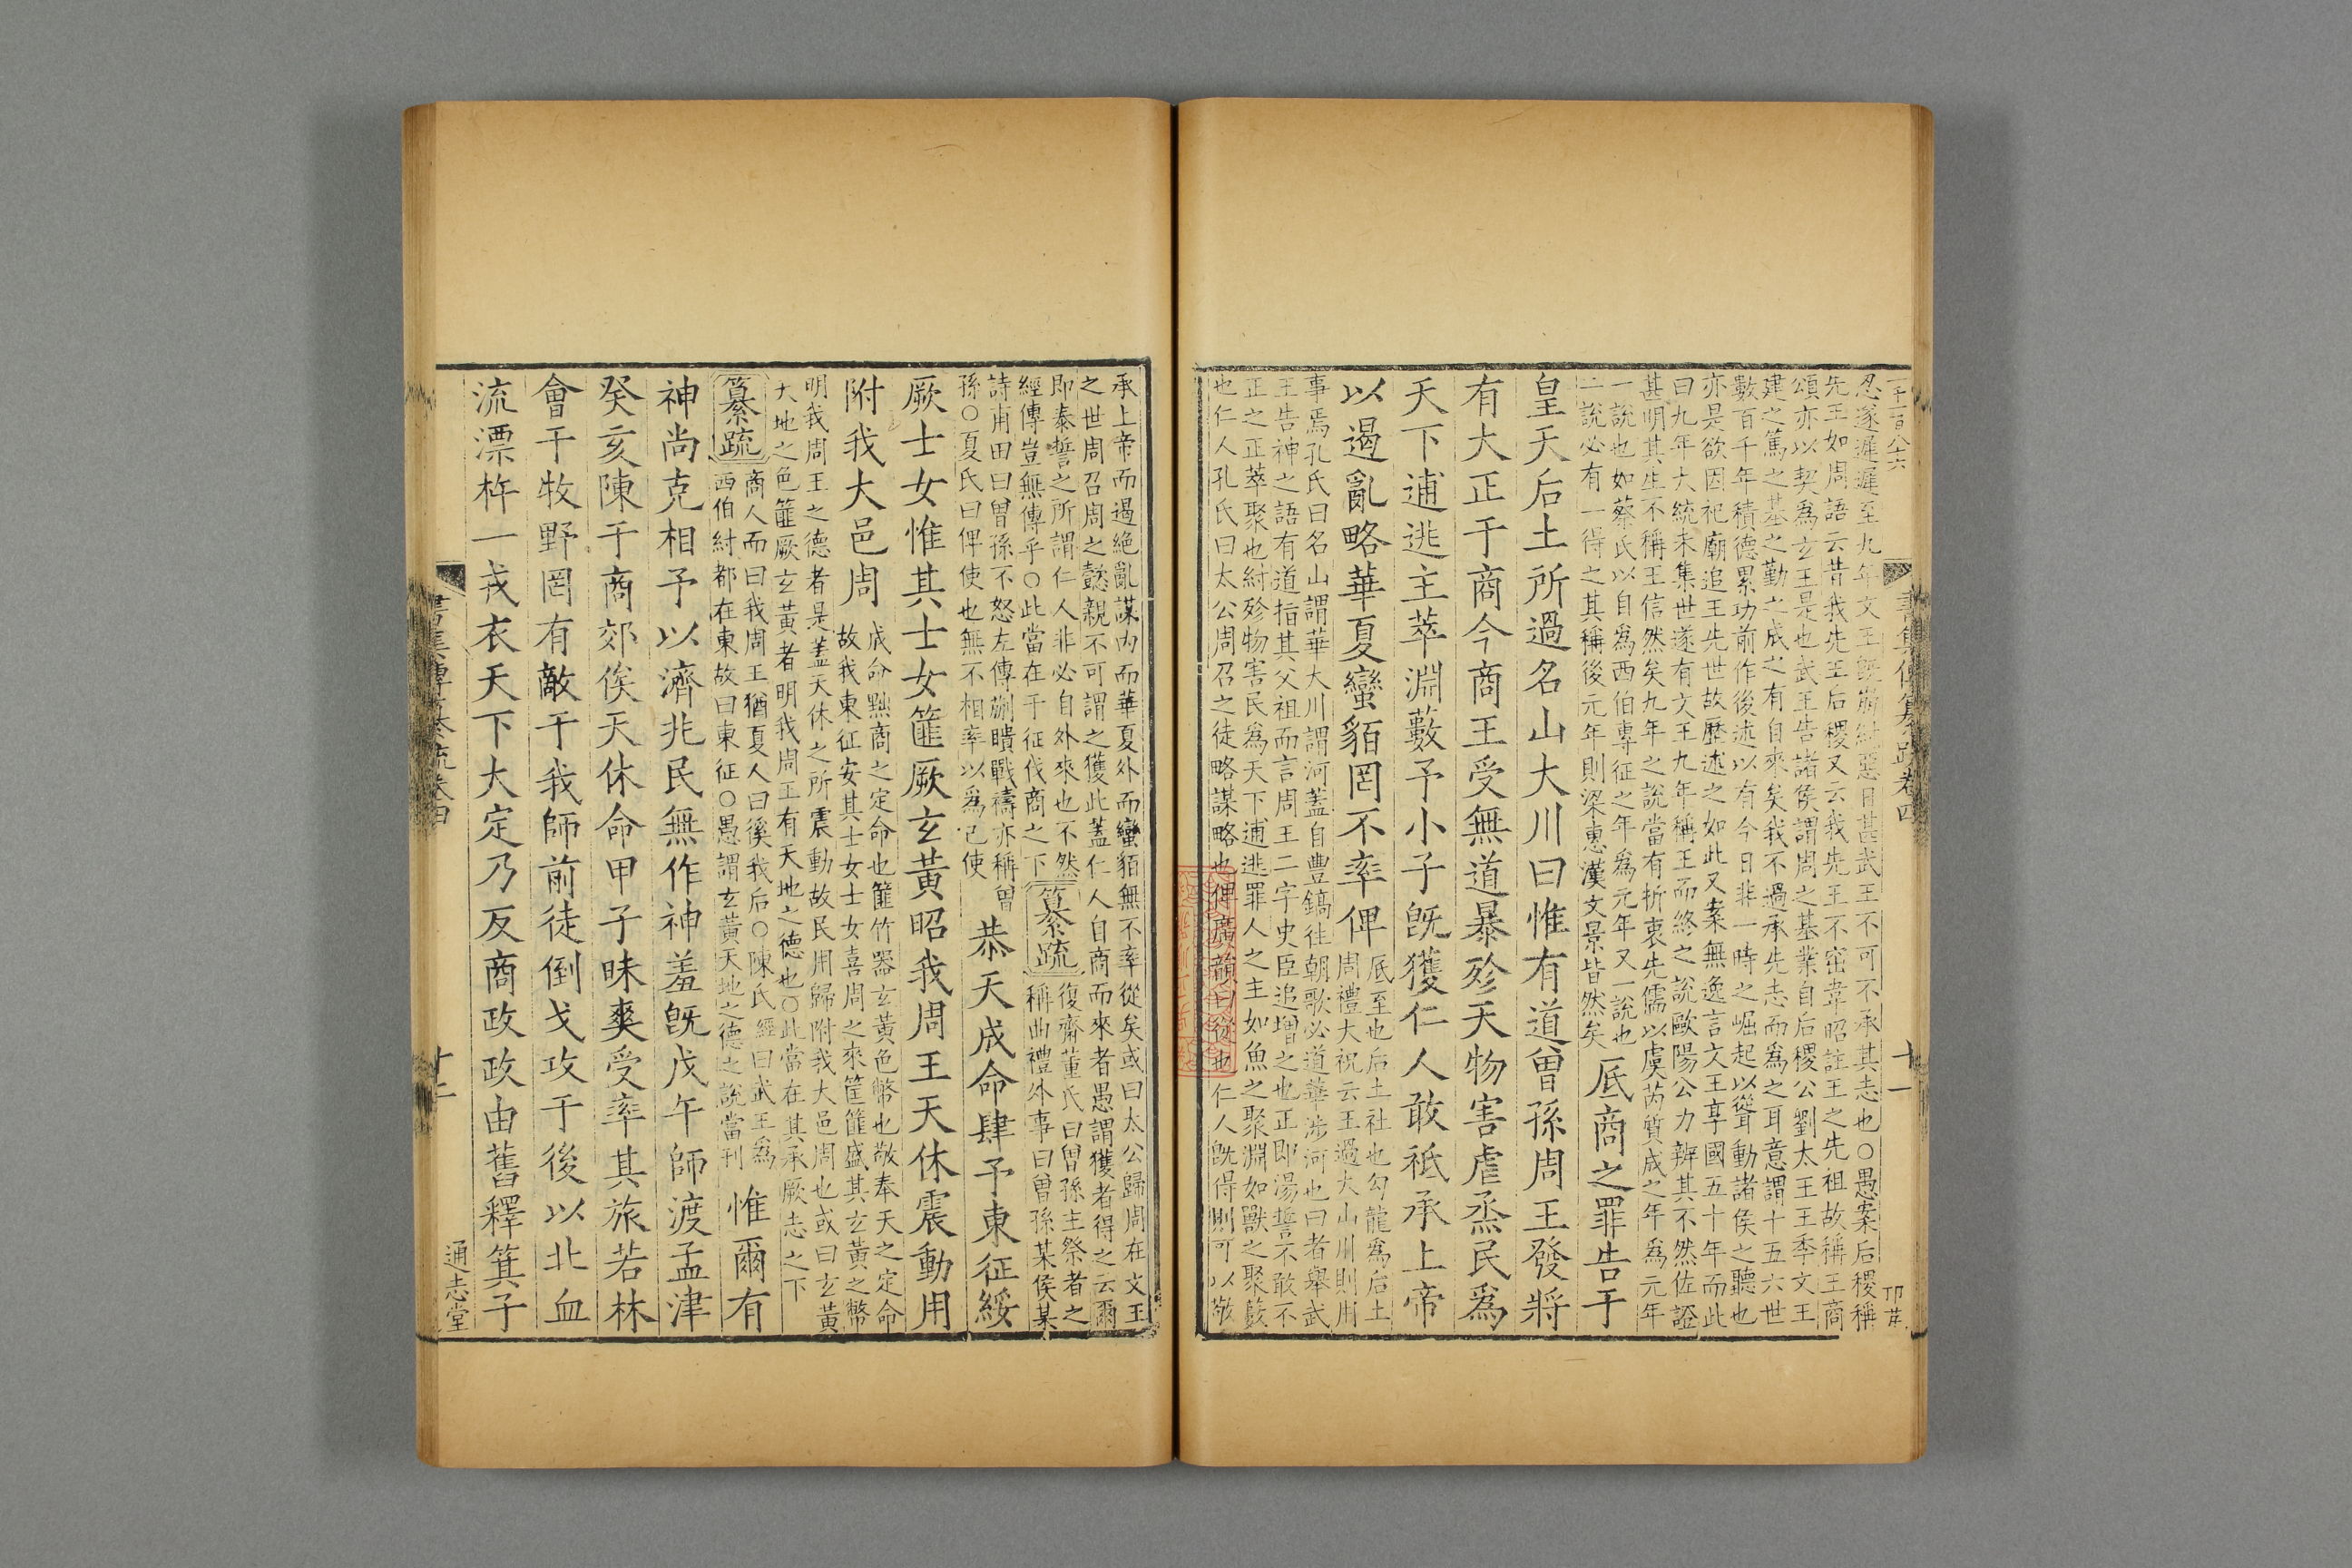 書集傳纂疏卷四
十一
忍遂遲遲至九年文王旣崩紂惡日甚武王不可不承其志也○愚案后稷稱
先王如周語云昔我先王后稷又云我先王不窋韋昭註王之先祖故稱王商
頌亦以契爲玄王是也武王告諸侯謂周之基業自后稷公劉太王王季文王
建之篤之基之勤之成之有自來矣我不過承先志而爲之耳意謂十五六世
數百千年積德累功前作後述以有今日非一時之崛起以聳動諸侯之聽也
亦是欲因祀廟追王先世故歷述之如此又案無逸言文王享國五十年而此
曰九年大統未集世遂有文王九年稱王而終之說歐陽公力辨其不然佐證
甚明其生不稱王信然矣九年之說當有折衷先儒以虞芮質成之年爲元年
一說也如蔡氏以自爲西伯專征之年爲元年又一說也
二說必有一得之其稱後元年則梁惠漢文景皆然矣
厎商之罪告于
皇天后土所過名山大川曰惟有道曾孫周王發將
有大正于商今商王受無道暴殄天物害虐烝民爲
天下逋逃主萃淵藪予小子旣獲仁人敢祗承上帝
以遏亂略華夏蠻貊罔不率俾
厎至也后土社也勾龍爲后土
周禮大祝云王過大山川則用
事焉孔氏曰名山謂華大川謂河蓋自豐鎬往朝歌必道華涉河也曰者舉武
王告神之語有道指其父祖而言周王二字史臣追增之也正即湯誓不敢不
正之正萃聚也紂殄物害民爲天下逋逃罪人之主如魚之聚淵如獸之聚藪
也仁人孔氏曰太公周召之徒略謀略也俾廣韻曰從也仁人旣得則可以敬
承上帝而遏絕亂謀內而華夏外而蠻貊無不率從矣或曰太公歸周在文王
之世周召周之懿親不可謂之獲此蓋仁人自商而來者愚謂獲者得之云爾
即泰誓之所謂仁人非必自外來也不然
經傳豈無傳乎○此當在于征伐商之下
纂疏
復齋董氏曰曾孫主祭者之
稱曲禮外事曰曾孫某侯某
詩甫田曰曾孫不怒左傳蒯聵戰禱亦稱曾
孫○夏氏曰俾使也無不相率以爲己使
恭天成命肆予東征綏
厥士女惟其士女篚厥玄黃昭我周王天休震動用
附我大邑周
成命黜商之定命也篚竹器玄黃色幣也敬奉天之定命
故我東征安其士女士女喜周之來筐篚盛其玄黃之幣
明我周王之德者是蓋天休之所震動故民用歸附我大邑周也或曰玄黃
天地之色篚厥玄黃者明我周王有天地之德也○此當在其承厥志之下
纂疏
商人而曰我周王猶夏人曰徯我后○陳氏經曰武王爲
西伯紂都在東故曰東征○愚謂玄黃天地之德之說當刊
惟爾有
神尚克相予以濟兆民無作神羞旣戊午師渡孟津
癸亥陳于商郊俟天休命甲子昧爽受率其旅若林
會于牧野罔有敵于我師前徒倒戈攻于後以北血
流漂杵一戎衣天下大定乃反商政政由舊釋箕子
書集傳纂疏卷四
十二
通志堂